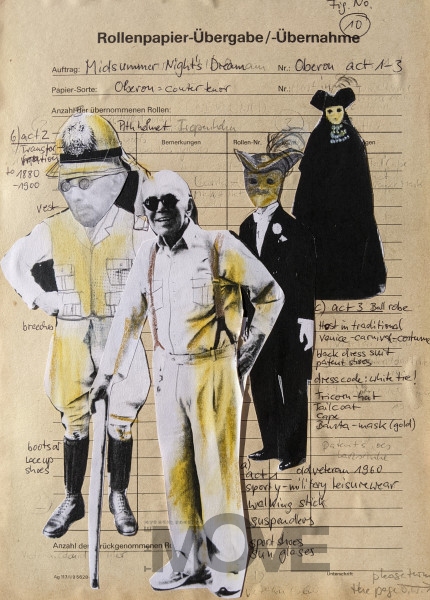 Fig. No.
10
Rollenpapier-Übergabe/-Übernahme
Auftrag: Midsummer Night's Dream Nr.: Oberon act 1-3
Papier-Sorte: Oberon = Conter tenor Nr.:
Anzahl der übernommenen Rollen:
b) act 2 - Pith helmet Tropenhelm
Bemerkungen
Rollen-Nr.
to 1880
-1900
vest
breeches
boots
lace up
shoes
c) act 3 Ball robe
Host in traditional
Venice-carnival-costume
black dress suit
patent shoes
dresscode: white tie!
Tricorn-hat
Tailcoat
Cape
Bauta-mask (gold)
a)
act 1 old veteran 1960
sporty-military leisurewear
walking stick
suspenders
sport shoes
sun glasses
MOVE
Anzahl der zurückgenommenen Rollen:
Unterschrift:
please turn
the page o.w.